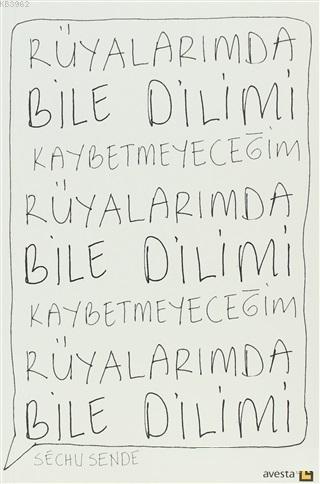 KB3962
RÜYALARIMDA
BİLE DİLİMİ
KAYBETMEYECEĞİM
RÜYALARIMDA
BİLE DİLİMİ
KAYBETMEYECEĞİM
RÜYALARIMDA
BİLE DİLİMİ
SÉCHU SENDE
avesta